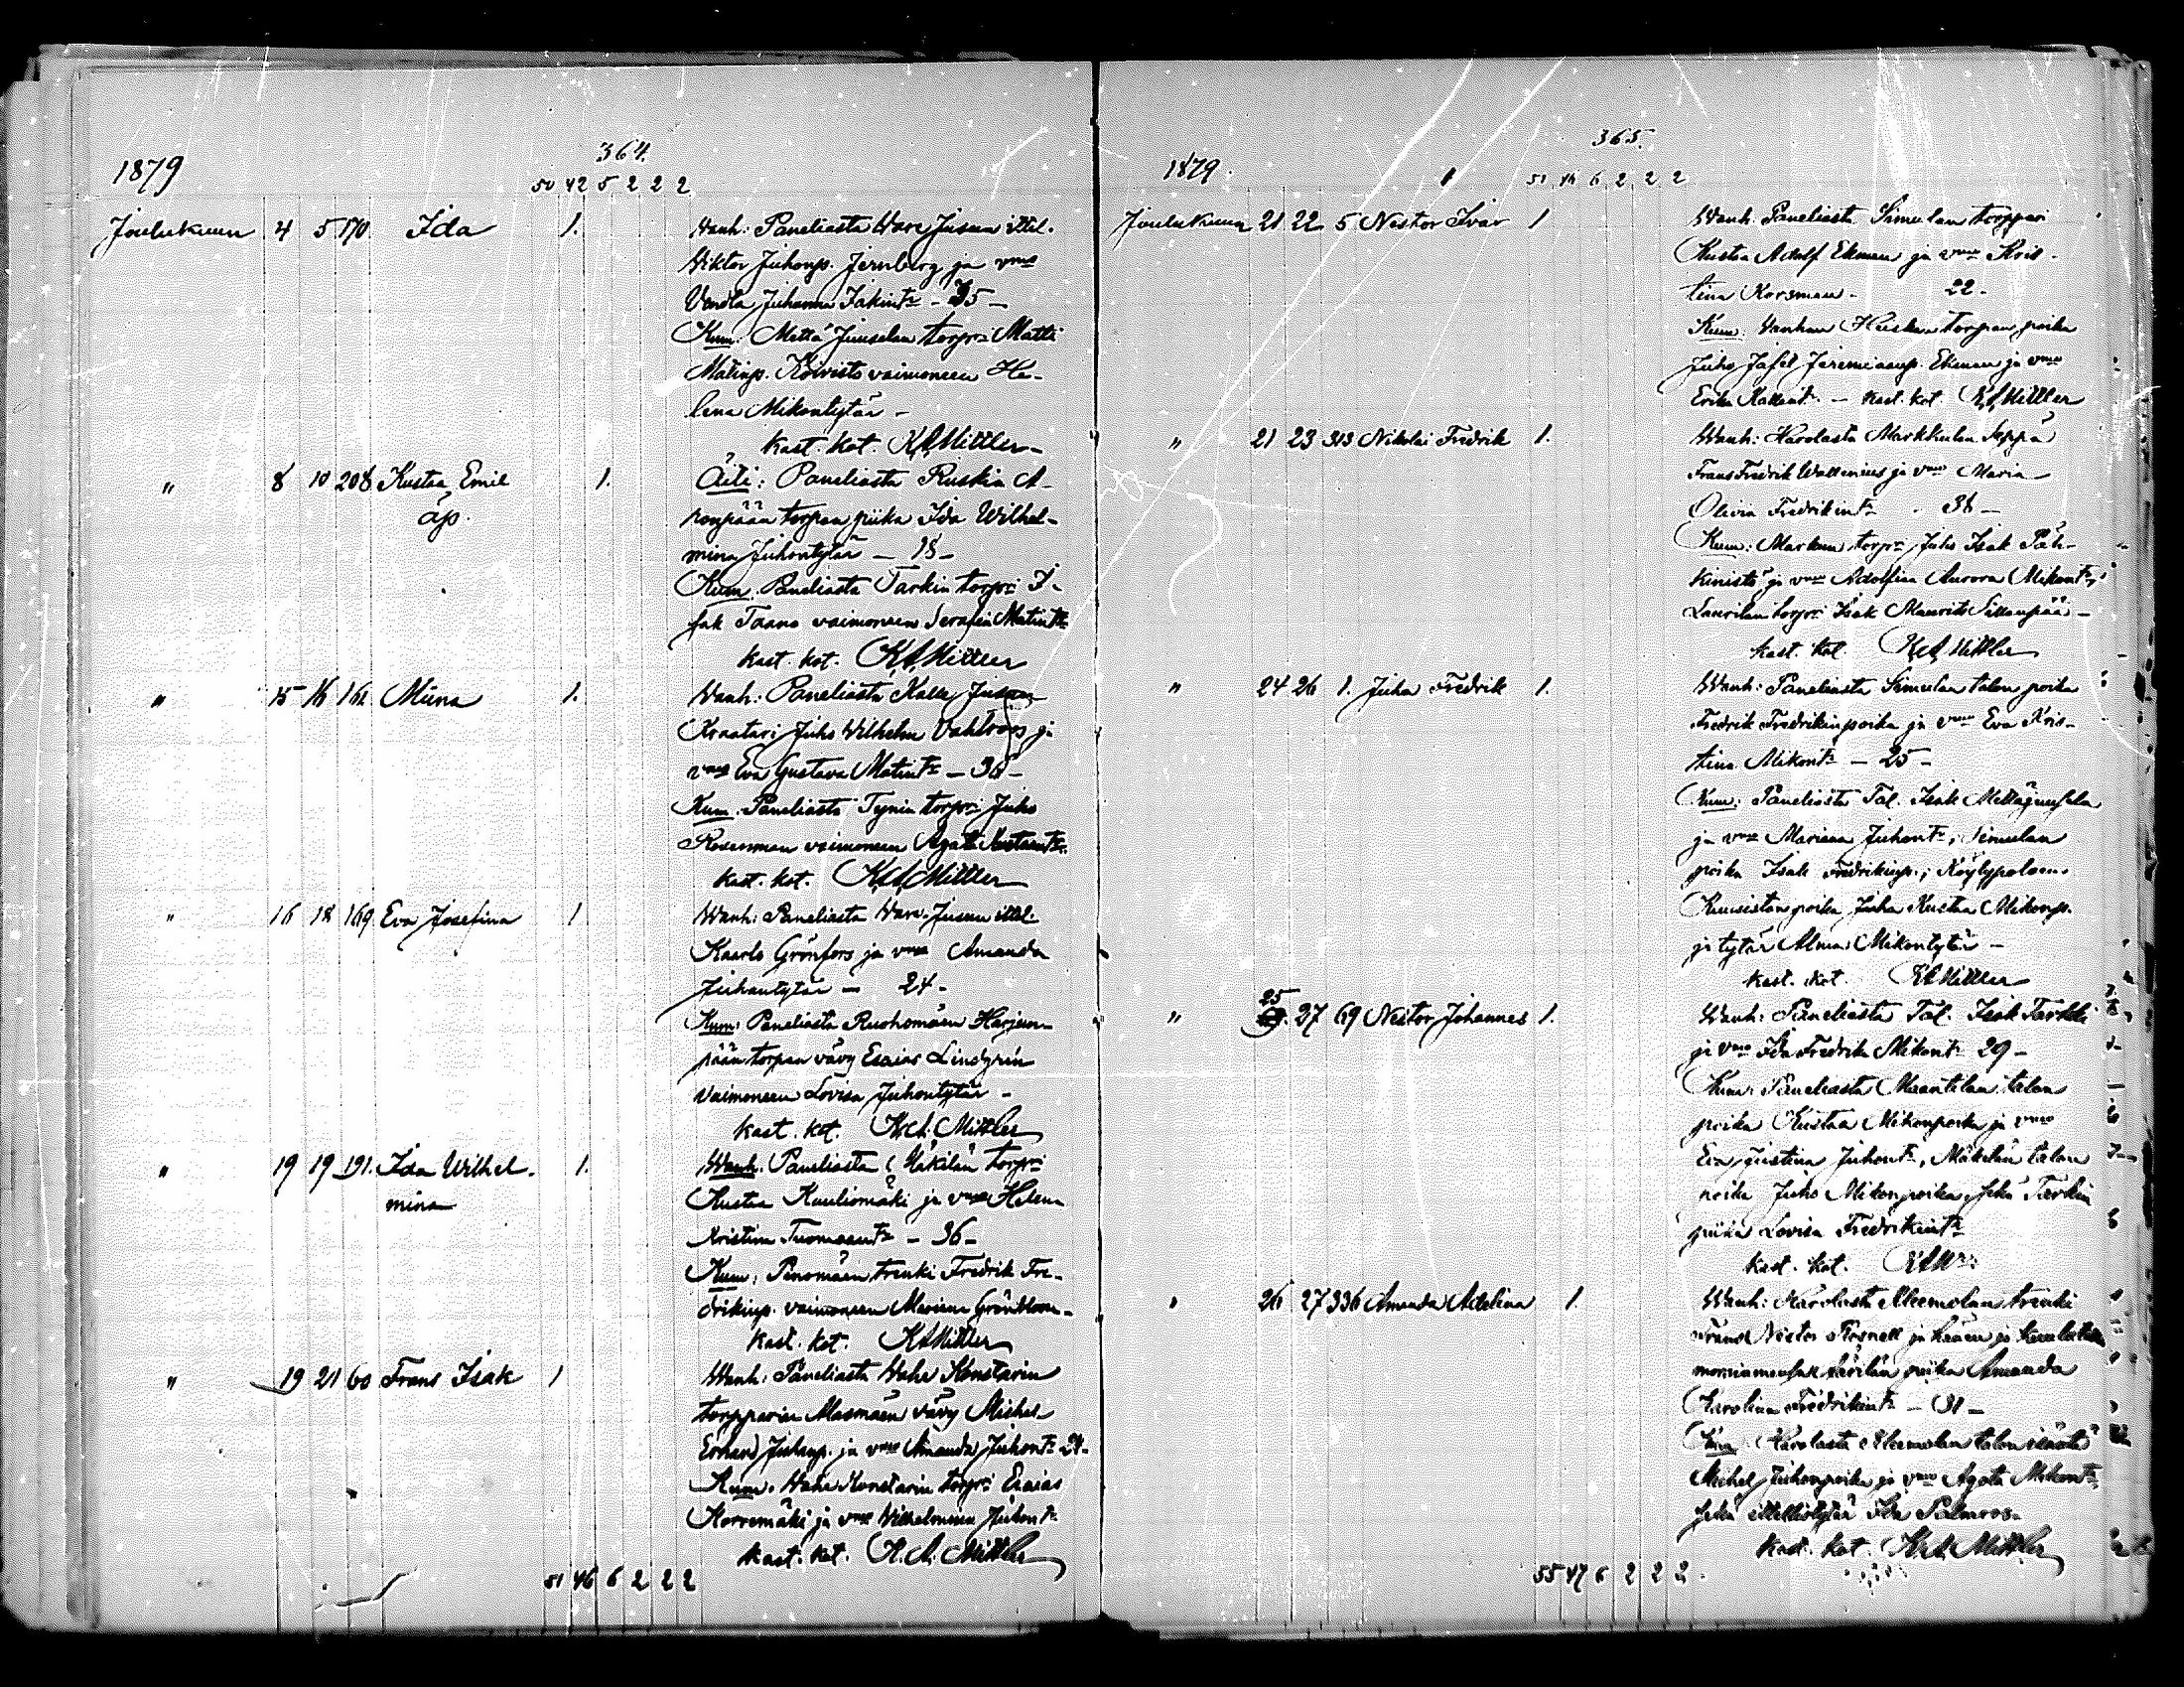 364.
1879
50 42 5 2 2 2
Joulukuun 4 5 170. Ida 1. Wanh: Paneliasta Ware Jusun ittel.
Wiktor Juhonp. Jernberg ja vmo
Vendla Juhanna Isakintr - 35 -
Kum. Mettä Juuselan torpri Matti
Matinp. Koivisto vaimoneen He-
lena Mikontytär -
kast. kot. K.A. Mittler -
" 8 10 208. Kustaa Emil 1. Äiti: Paneliasta Ruskin A-
äp. ronpään torpan piika Ida Wilhel-
mina Juhontytär - 18 -
Kum. Paneliasta Tarkin torpri I-
sak Taano vaimoneen Serafia Matintr
kast. kot. K.A. Mittler
" 15 16 161. Miina 1. Wanh: Paneliasta Kalle Jusun
Kraatari Juho Wilhelm Vahlroos ja
vmo Eva Gustava Matintr - 36 -
Kum. Paneliasta Tynin torpri Juho
Rosenman vaimoneen Agata Kustaantr.
kast. kot. K.A. Mittler
" 16 18 169. Eva Josefina 1. Wanh: Paneliasta Ware Jusun ittel.
Kaarlo Grönfors ja vmo Amanda
Juhantytär - 24 -
Kum: Paneliasta Ruohomäen Harjun-
pään torpan vävy Esaias Lindgrén
vaimoneen Lovisa Juhontytär -
kast. kot. K.A. Mittler
" 19 19 191. Ida Wilhel- 1. Wanh. Paneliasta Mäkilän torpri
mina Kustaa Kuuliomäki ja vmo Helena
Kristina Tuomaantr - 36 -
Kum: Penomäen trenki Fredrik Fre-
drikinp. vaimoneen Mariana Grönblom -
kast. kot. K.A. Mittler
" 19 21 60 Frans Isak 1 Wanh: Paneliasta Wähä Konstarin
torpparin Masmäen vävy Mishel
Erhand Juhanp. ja vmo Amanda Juhontr 24 -
Kum. Wähä Konstarin torpri Esaias
Korremäki ja vmo Wilhelmina Juhontr
kast. kot. K.A. Mittler
51 46 6 2 2 2
365.
1879.
51 46 6 2 2 2
Joulukuun 21 22 5 Nestor Ivar 1 Wanh. Paneliasta Simulan torppari
Kustaa Adolf Ekman ja vmo Kris-
tina Korsman - 22 -
Kum. Vanhan Heiskan torpan poika
Juho Jafet Jeremiaanp. Ekman ja vmo
Erika Kallentr. - kast. kot. K.A. Mittler
" 21 23 313 Nikolai Fredrik 1. Wanh: Harolasta Markkulan seppä
Frans Fredrik Wallenius ja vmo Maria
Olivia Fredrikintr - 36 -
Kum: Markun torpri Juho Isak Päh-
kinistö ja vmo Adolfina Aurora Mikontr,
Laurilan torpri Isak Maurits Sillanpää -
kast. kot. K.A. Mittler
" 24 26 1. Juha Fredrik 1. Wanh: Paneliasta Simulan talon poika
Fredrik Fredrikinpoika ja vmo Eva Kris-
tina Mikontr - 25 -
Kum: Paneliasta Tal. Isak Mettäjuusela
ja vmo Mariana Juhontr, Simulan
poika Isak Fredrikinp.; Köylypolven
Kuusiston poika Juha Kustaa Mikonp.
ja tytär Alma Mikontytär -
kast. kot. K.A. Mittler
25
" 27 69 Nestor Johannes 1. Wanh: Paneliasta Tal. Isak Tarkki
ja vmo Ida Fredrika Mikontr 29 -
Kum: Paneliasta Maantilan talon
poika Kustaa Mikonpoika ja vmo
Eva Justina Juhontr, Mäkilän talon
poika Juho Mikonpoika sekä Tarkin
piika Lovisa Fredrikintr
kast. kot. K.A.M:
" 26 27 336 Amanda Adelina 1. Wanh: Harolasta Sleemolan trenki
Frans Nestor Rosnell ja hänen
piika Amanda
Karolina Fredrikintr - 31 -
Kum Harolasta Sleemolan talon isäntä
Mishel Juhonpoika ja vmo Agata Mikontr,
sekä ittellistytär Ida Palmroos.
kast. kot. K.A. Mittler
55 47 6 2 2 2.